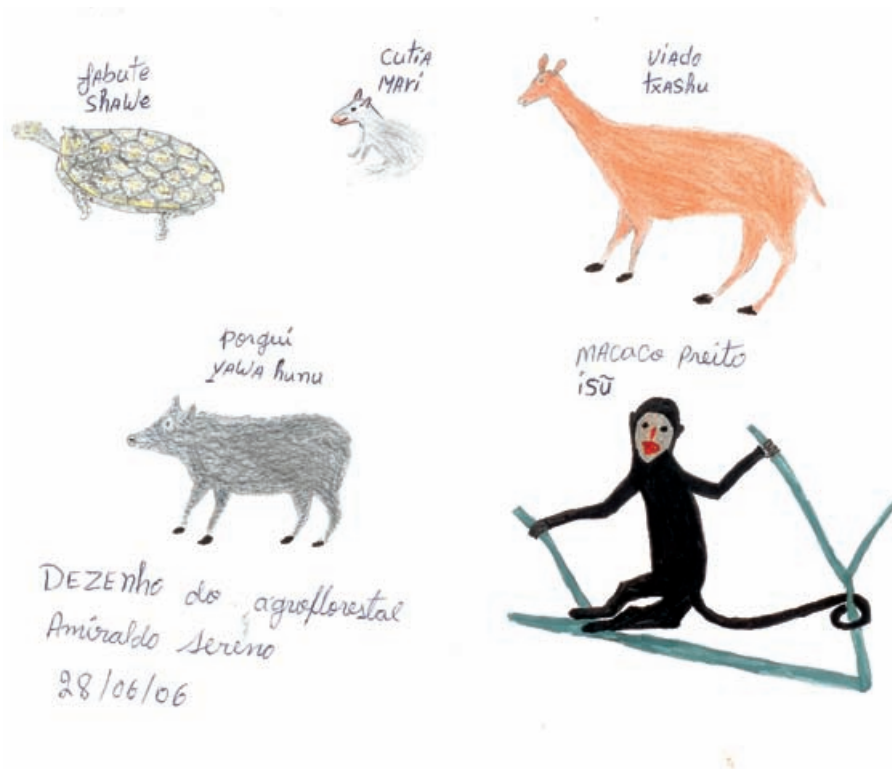 jabute
shawe
cutia
mari
viado
txashu
porqui
yawa hunu
macaco preito
isũ
DEZENho do agroflorestal
Amiraldo sereno
28/06/06